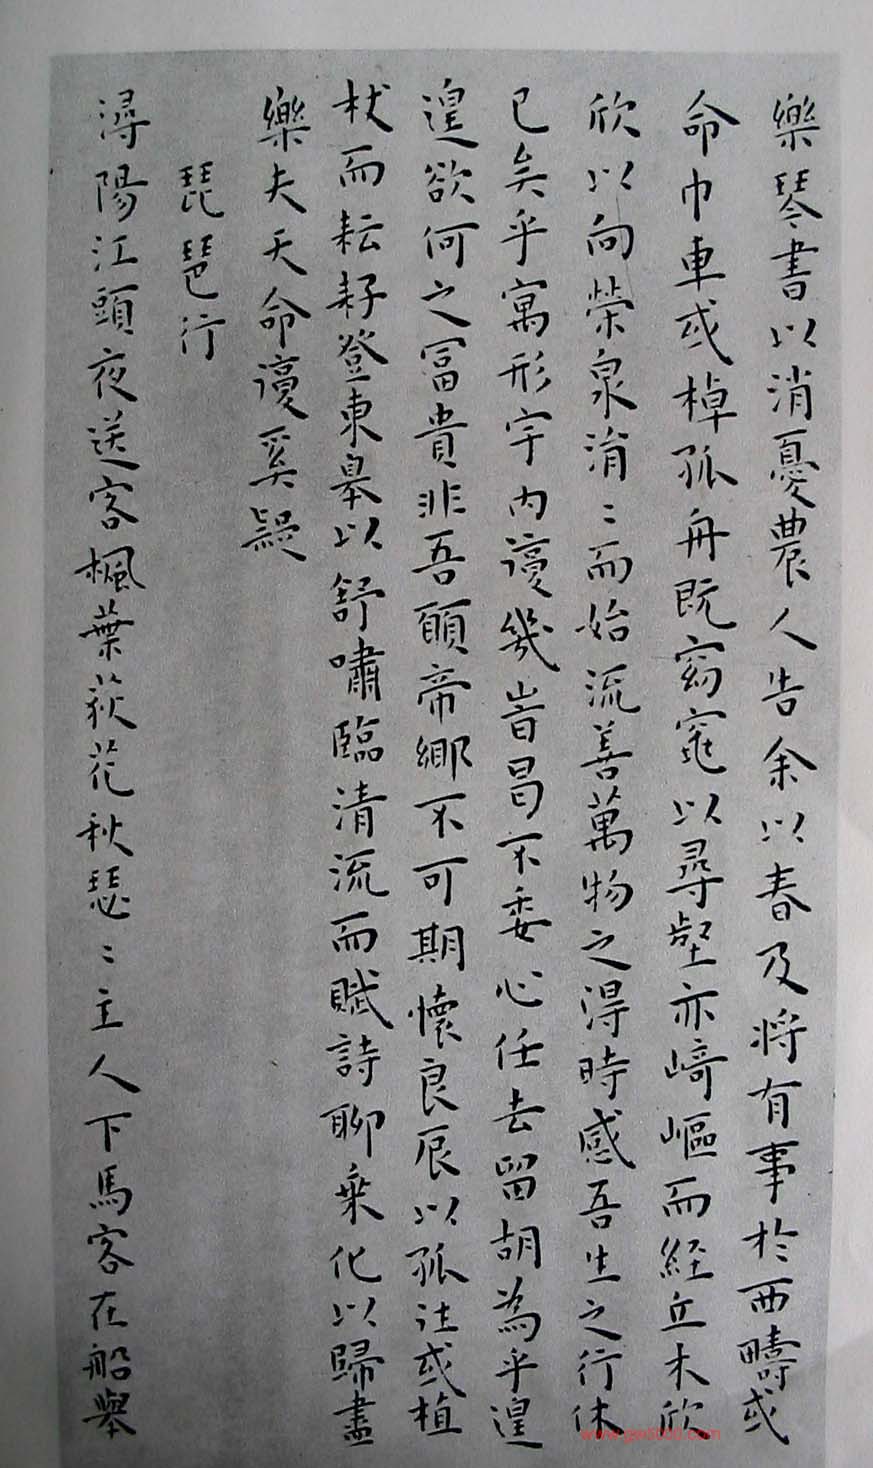 樂琴書以消憂農人告余以春及將有事於西疇或
命巾車或棹孤舟既窈窕以尋壑亦崎嶇而經丘木欣
欣以向榮泉涓〻而始流善萬物之得時感吾生之行休
已矣乎寓形宇內復幾時曷不委心任去留胡為乎遑
遑欲何之富貴非吾願帝鄉不可期懷良辰以孤往或植
杖而耘耔登東皋以舒嘯臨清流而賦詩聊乘化以歸盡
樂夫天命復奚疑
琵琶行
潯陽江頭夜送客楓葉荻花秋瑟〻主人下馬客在船舉